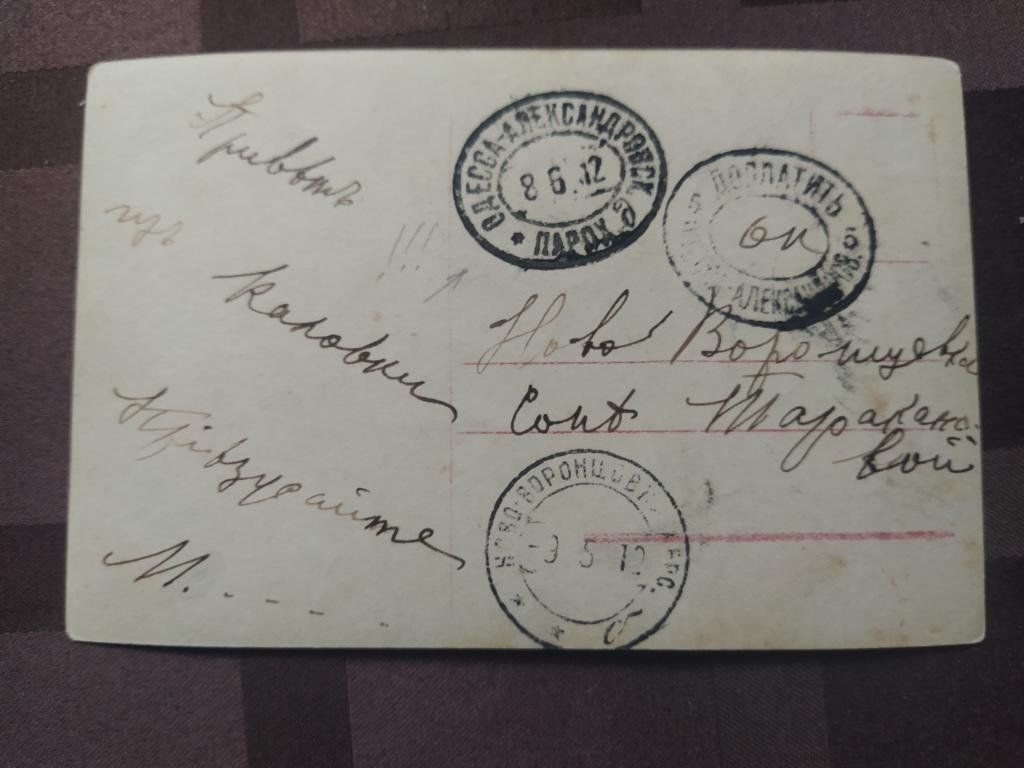 Привѣтъ
изъ
Каловки
Пріѣзжайте
М. - - - -
!!!
ОДЕССА-АЛЕКСАНДРОВСК.
8 6 12
* ПАРОХ. б
ДОПЛАТИТЬ
6к
АЛЕКСАНДРОВ.
Ново Воронцовка
Сонѣ Таракано-
вой
НОВО-ВОРОНЦОВКА ХЕРС.
9 6 12
* * б